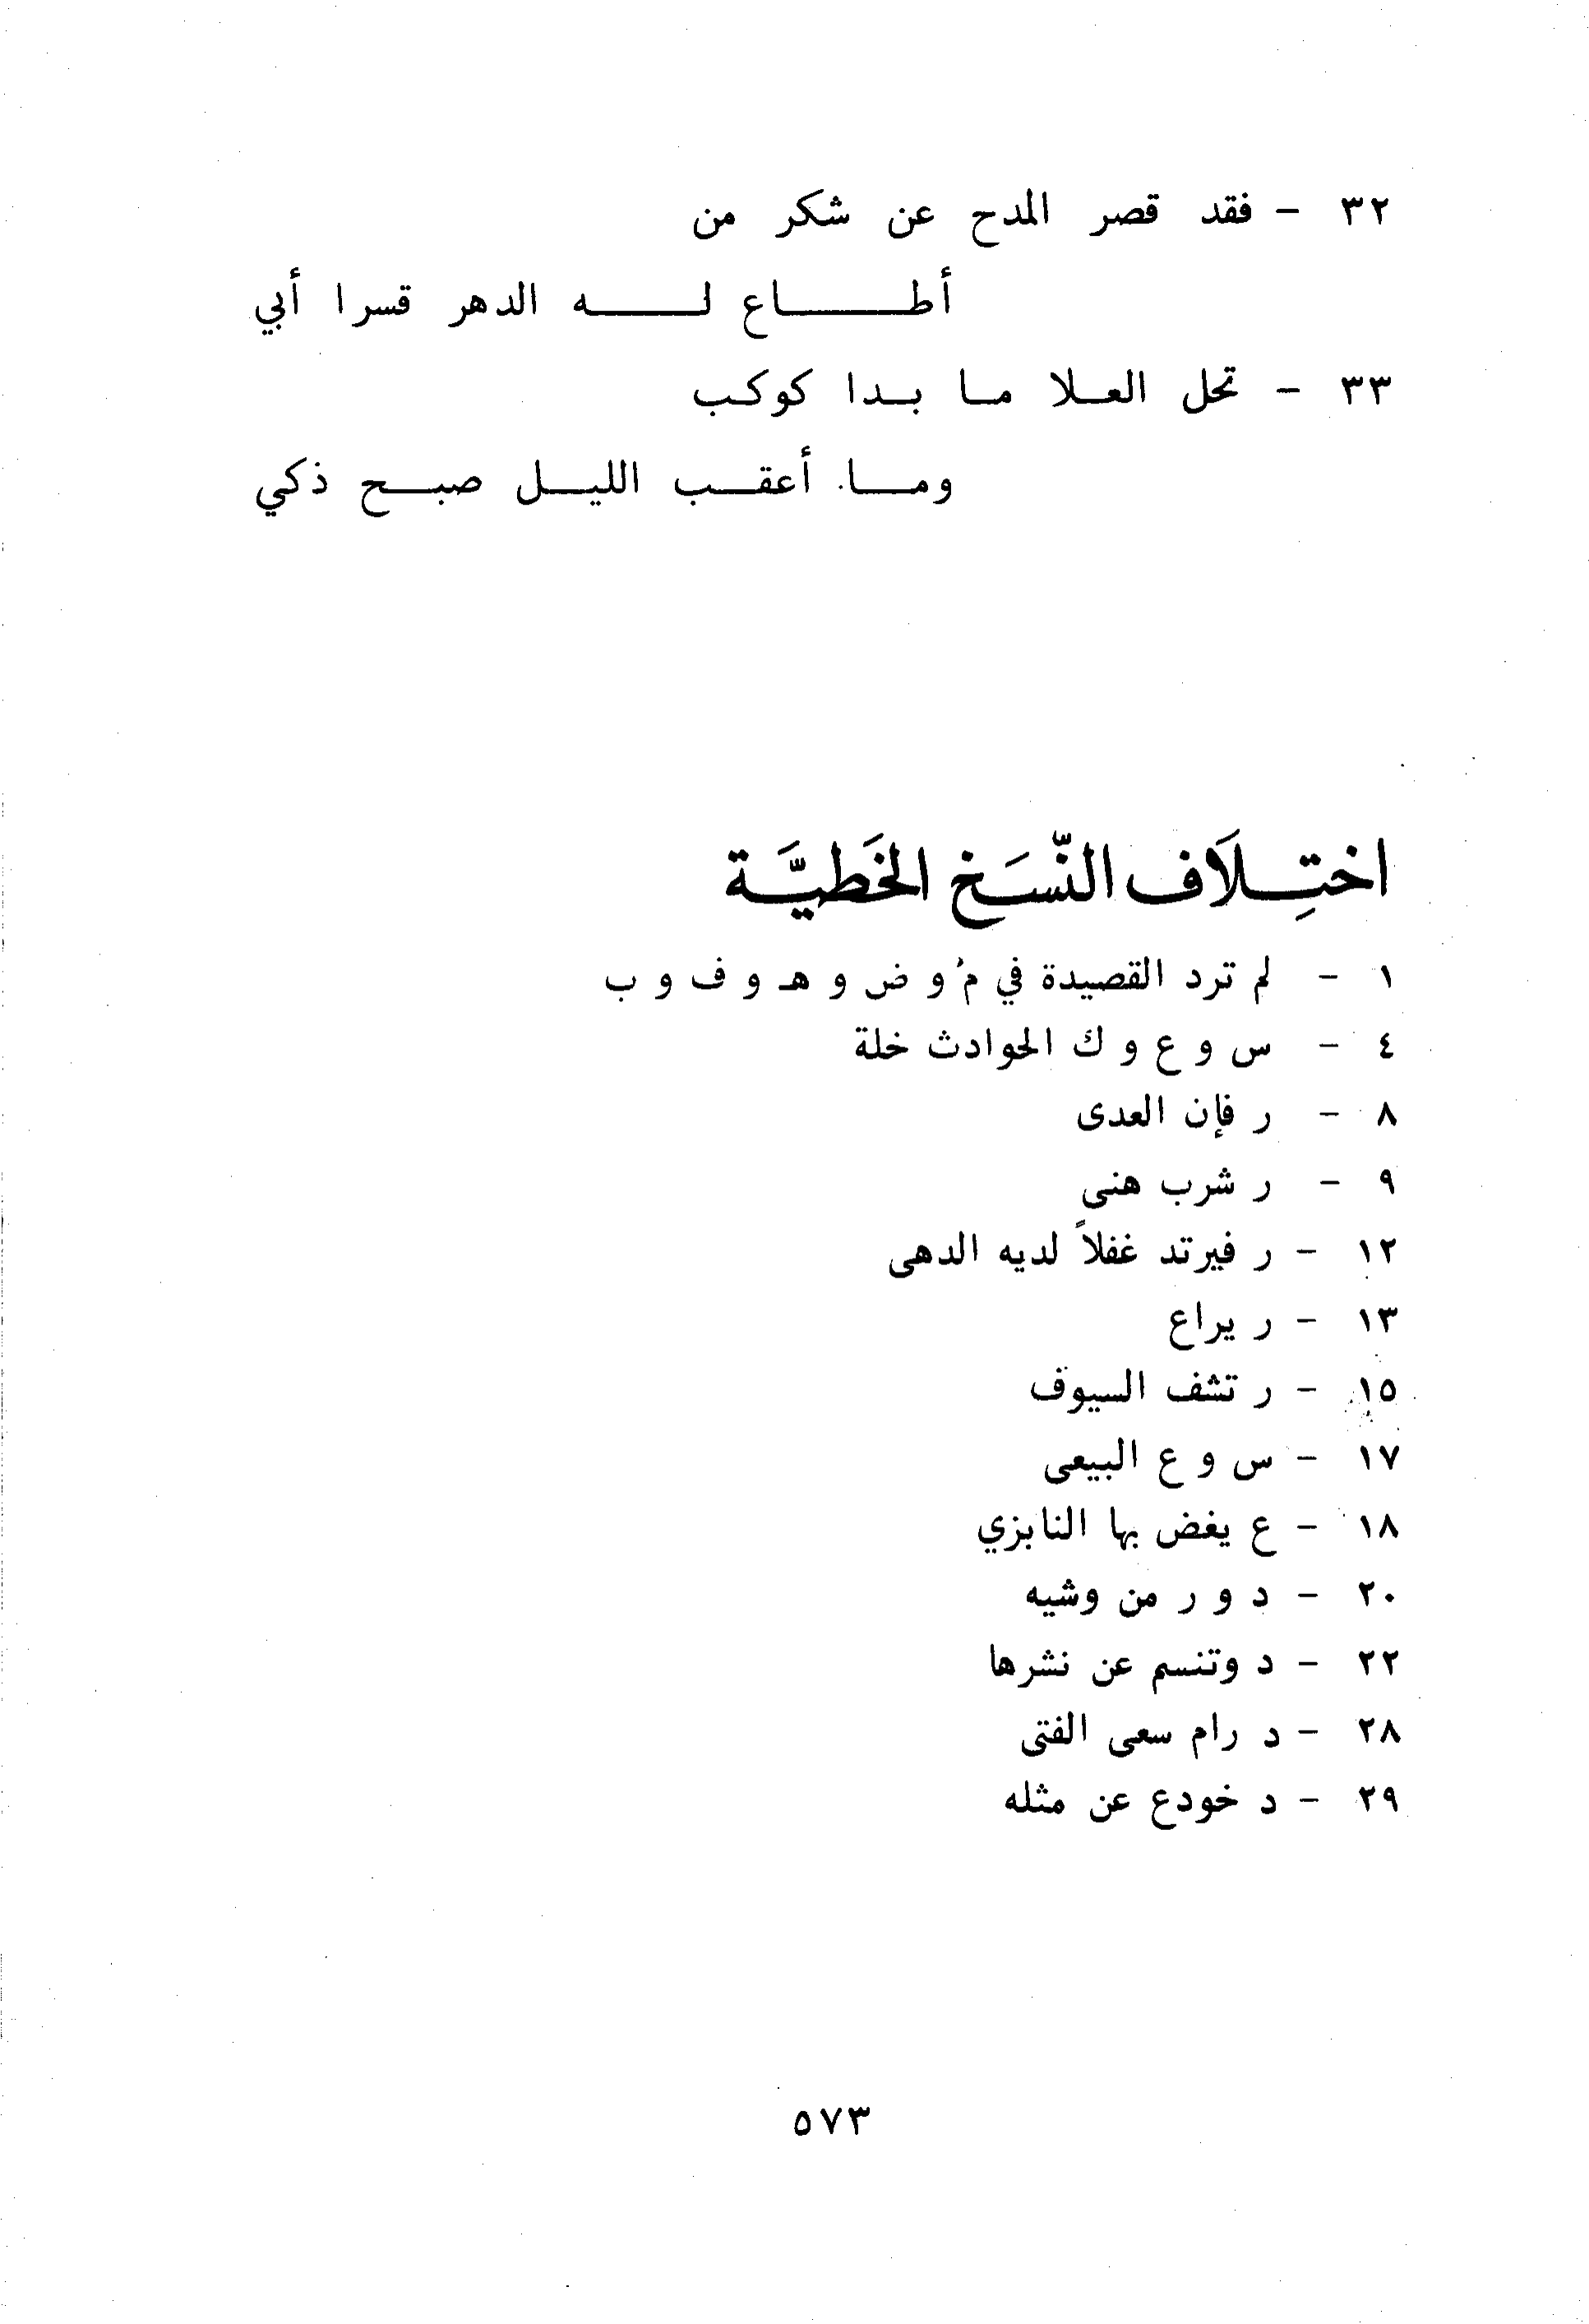 ٣٢ - فقد قصر المدح عن شكر من
أطاع له الدهر قسرا أبي
٣٣ - تحل العلا ما بدا كوكب
وما أعقب الليل صبح ذكي
اختِلَاف النّسَخ الخَطيَّة
١ - لم ترد القصيدة في م و ض و هـ و ف و ب
٤ - س و ع و ك الحوادث خلة
٨ - ر فإن العدى
٩ - ر شرب هنى
١٢ - ر فيرتد غفلاً لديه الدهى
١٣ - ر يراع
١٥ - ر تشف السيوف
١٧ - س و ع البيعى
١٨ - ع يغض بها النابزي
٢٠ - د و ر من وشيه
٢٢ - د وتنسم عن نشرها
٢٨ - د رام سعى الفتى
٢٩ - د خودع عن مثله
٥٧٣